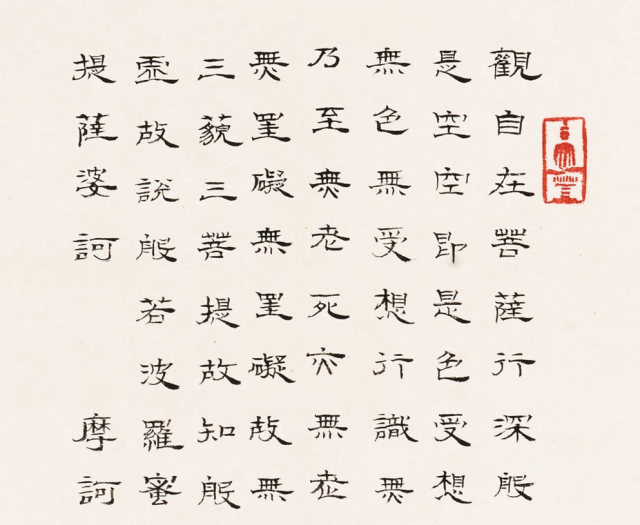 觀自在菩薩行深般
是空空即是色受想
無色無受想行識無
乃至無老死亦無老
無罣礙無罣礙故無
三藐三菩提故知般
虛故說般若波羅蜜
提薩婆訶 摩訶